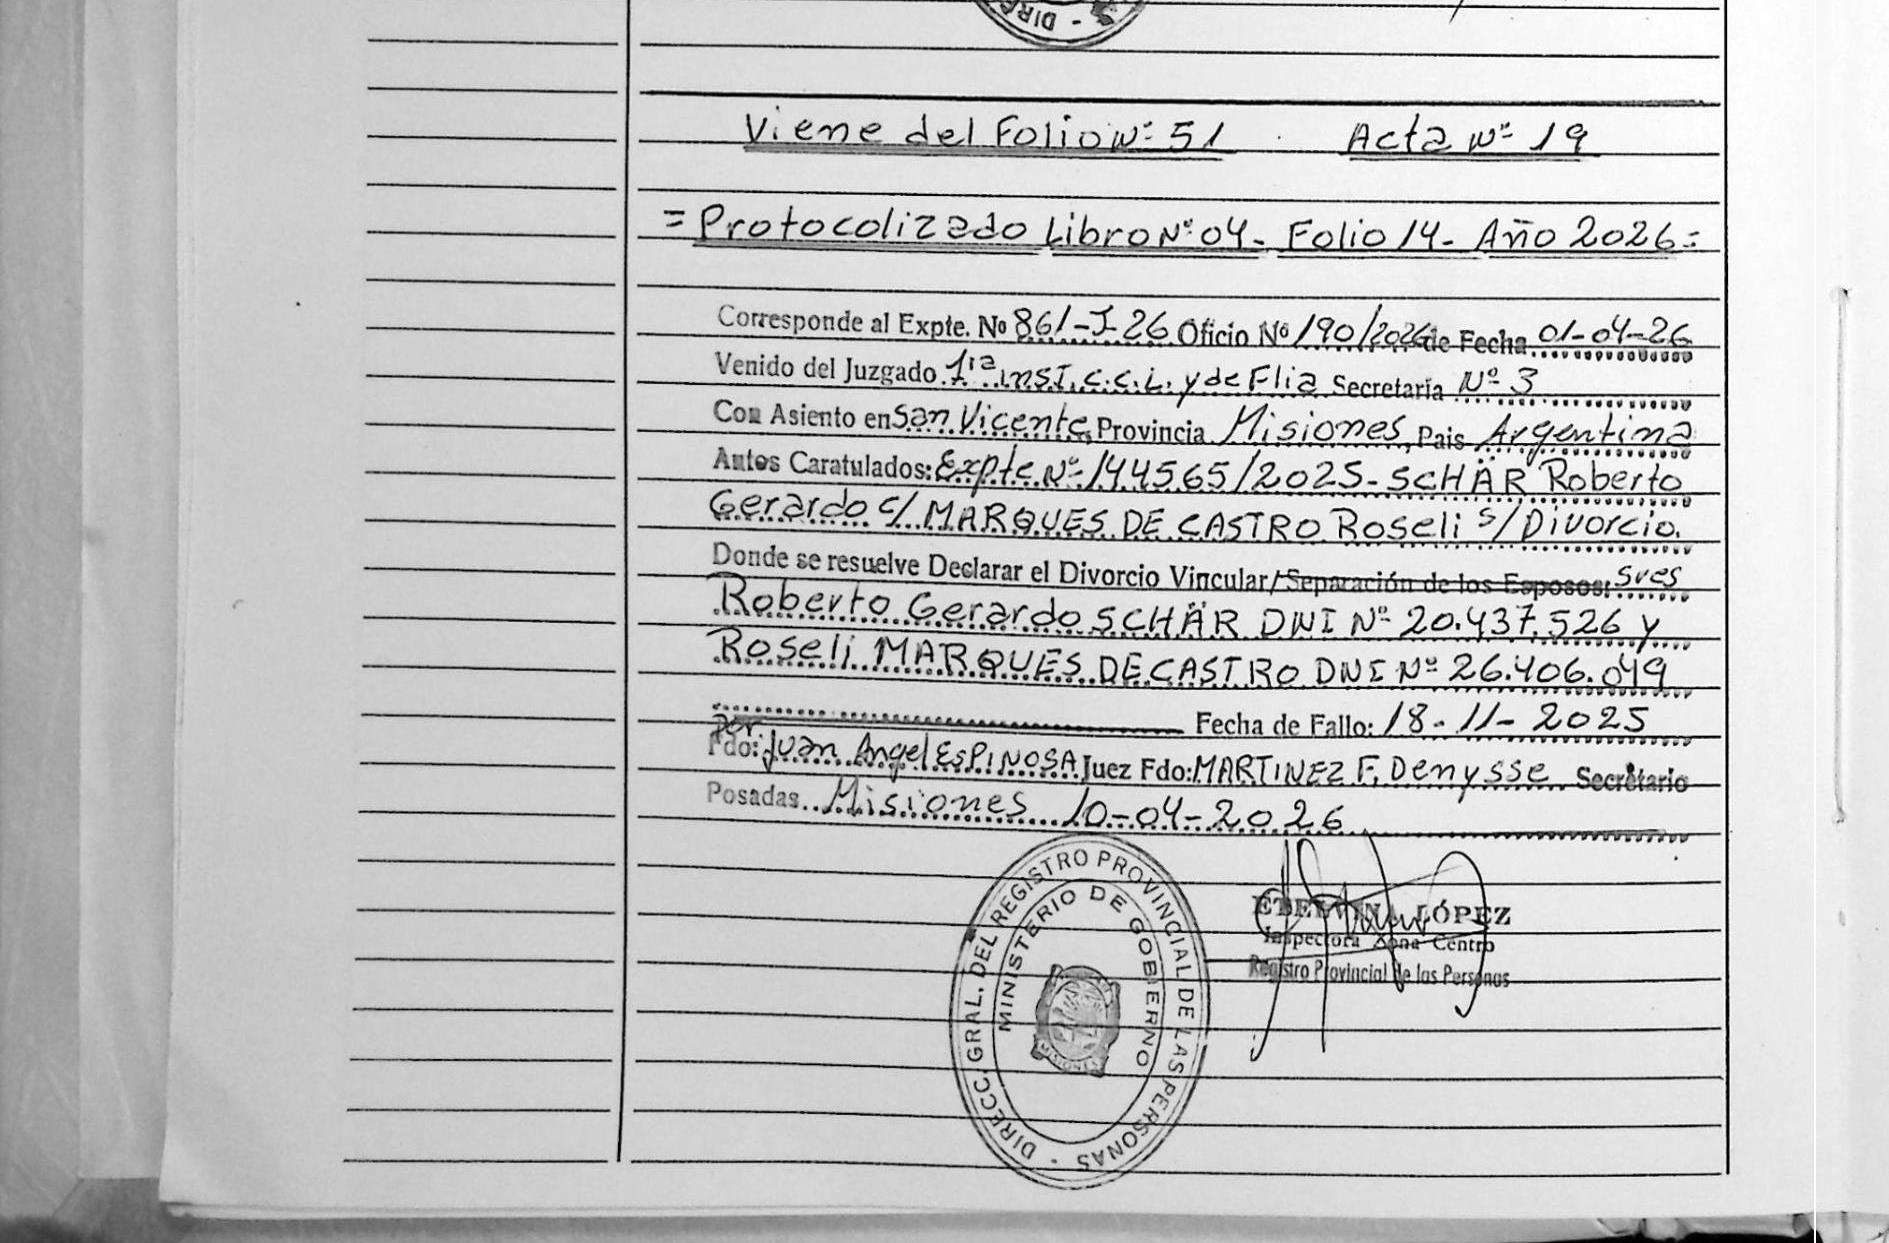 DIREC
Viene del Folio Nº 51 Acta Nº 19
= Protocolizado Libro Nº 04 - Folio 14 - Año 2026 =
Corresponde al Expte. Nº 861-J-26 Oficio Nº 190/2026 de Fecha 01-04-26
Venido del Juzgado 1ra inst. C.C.L. y de Flia Secretaría Nº 3
Con Asiento en San Vicente, Provincia Misiones, Pais Argentina
Autos Caratulados: Expte Nº 144565/2025 - SCHÄR Roberto
Gerardo c/ MARQUES DE CASTRO Roseli s/ Divorcio.
Donde se resuelve Declarar el Divorcio Vincular/Separación de los Esposos: Sres
Roberto Gerardo SCHÄR DNI Nº 20.437.526 y
Roseli MARQUES DE CASTRO DNI Nº 26.406.049
por Fecha de Fallo: 18-11-2025
Fdo: Juan Angel ESPINOSA Juez Fdo: MARTINEZ F. Denysse Secretario
Posadas Misiones 10-04-2026
DIRECC. GRAL. DEL REGISTRO PROVINCIAL DE LAS PERSONAS -
MINISTERIO DE GOBIERNO
MISIONES
EDELVINA LÓPEZ
Inspectora Zona Centro
Registro Provincial de las Personas